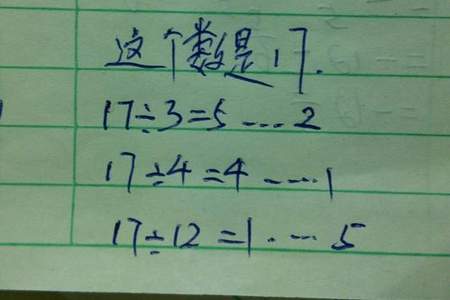 这个数是17.
17÷3=5……2
17÷4=4……1
17÷12=1……5